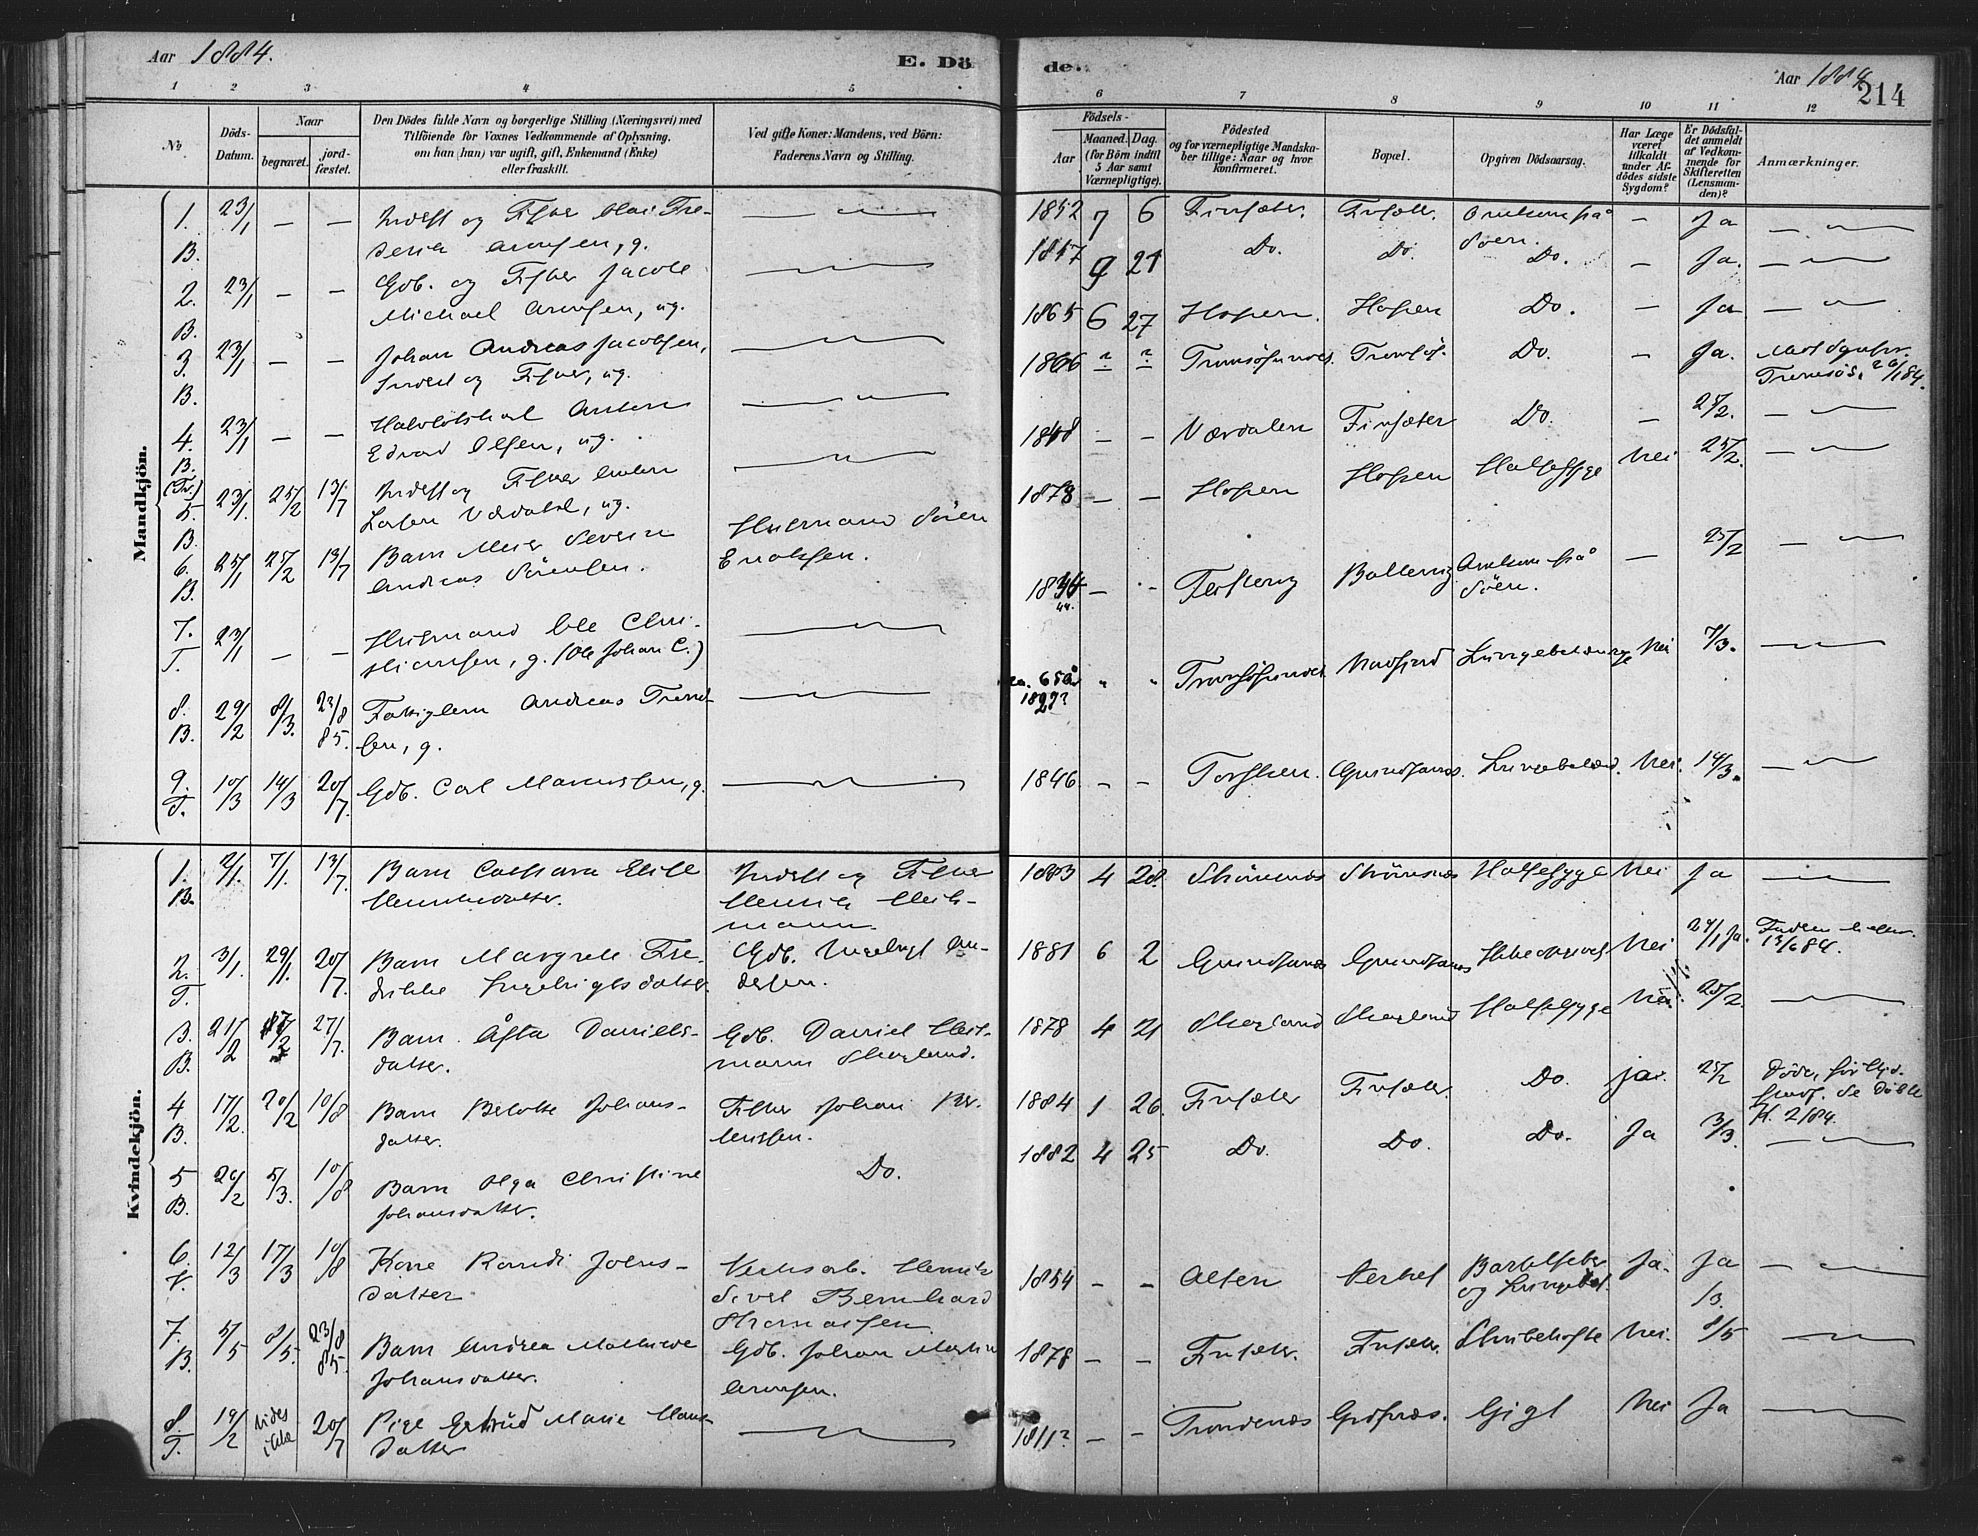 Aar 1884.
E. Dö
de.
Aar 1884
214
1 2 3 4 5 6 7 8 9 10 11 12
No
Döds-
Datum.
Naar
begravet.
jord-
fæstet.
Den Dödes fulde Navn og borgerlige Stilling (Næringsvei) med
Tilföiende for Voxnes Vedkommende af Oplysning,
om han (hun) var ugift, gift, Enkemand (Enke)
eller fraskilt.
Ved gifte Koner: Mandens, ved Börn:
Faderens Navn og Stilling.
Födsels-
Aar
Maaned. Dag.
(for Börn indtil
5 Aar samt
Værnepligtige).
Födested
og for værnepligtige Mandska-
ber tillige: Naar og hvor
konfirmeret.
Bopæl.
Opgiven Dödsaarsag.
Har Læge
været
tilkaldt
under Af-
dödes sidste
Sygdom?
Er Dödsfal-
det anmeldt
af Vedkom-
mende for
Skifteretten
(Lensman-
den)?
Anmærkninger.
Mandkjön.
1. B. 23/1 — — Inderst og Fisker Olai Fre-
derik Aronsen, g.
1852 7 6 Finsæter. Finsæter. Omkom på
Söen. — Ja
2. B. 23/1 — — Gdb. og Fisker Jacob
Michael Aronsen, ug.
1857 9 21 Do. Do. Do. — Ja.
3. B. 23/1 — — Johan Andreas Jacobsen,
Inderst og Fisker, ug.
1865 6 27 Hopen. Hopen Do. — Ja
4. B. (Tr.) 23/1 — — Anton
Edvard Olsen, ug.
1866 ? ? Tromsösundet. Tromsö. Do. — Ja.
Tromsö
5. B. 23/1. 25/2 13/7 Inderst og Fisker Anton
Larsen Værdahl, ug.
1848 — — Værdalen Finsæter Do. — 25/2.
6. B. 25/1 25/2 13/7 Barn Meier Severin
Andreas Sörensen.
Husmand Sören
Enoksen.
1878 — — Hopen Hopen Halsesyge Nei 25/2.
7. T. 23/1 — — Husmand Ole Chri-
stiansen, g. (Ole Johan C.)
Omkom på
Söen. — 25/2
8. B. 29/2 8/3. 23/8 85. Andreas Trond-
sen, g.
ca. 65 år
Tromsösundet Lungebetændelse Nei 7/3.
9. T. 10/3 14/3 20/7. Gdb. Carl Mariussen, g.
1846 — — Torsken. Grundfarnes. Nei. 14/3.
Kvindekjön.
1. B. 2/1. 7/1. 13/7. Barn Cathara Elise
Henriksdatter.
Inderst og Fisker
Henrik Heit-
mann.
1883 4 28. Strömsnæs Strömsnæs Halsesyge Nei Ja
2. T. 3/1. 29/1. 20/7. Barn Margrete Fre-
drikke Ingebrigtsdatter.
Gdb. Ingebrigt An-
dersen.
1881 6 2 Grundfarnæs Grundfarnæs Ikke opgivet Nei
3. B. 21/2 27/7. Barn Åsta Daniels-
datter.
Gdb. Daniel Heit-
mann Skogland.
1878 4 21 Skogland Skogland Halsesyge Nei 25/2
4 B. 17/2. 20/2 10/8 Barn Johans-
datter.
Fisker Johan Ber-
entsen.
1884 1 26. Finsæter Finsæter. Do. ja. 25/2
5 B. 26/2 5/3. 10/8 Barn Olga Christine
Johansdatter.
Do.
1882 4 25 Do. Do. Do. Ja 3/3.
6. T. 12/3 17/3 10/8 Kone Randi Johns-
datter
Henrik
Bernhard
Thomassen
1854 — — Alten Barselfeber
og Ja. Ja
7. B. 5/5 8/5. 23/8 85. Barn Andrea Mathilde
Johansdatter.
Gdb. Johan Martin
Aronsen.
1878 — — Finsæter. Finsæter. Strubehoste Nei. 8/5
8. T. 19/2 vides
ikke 20/7 Pige Gertrud Marie Hans-
datter
1811? — — Trondenæs Gigt Nei Ja